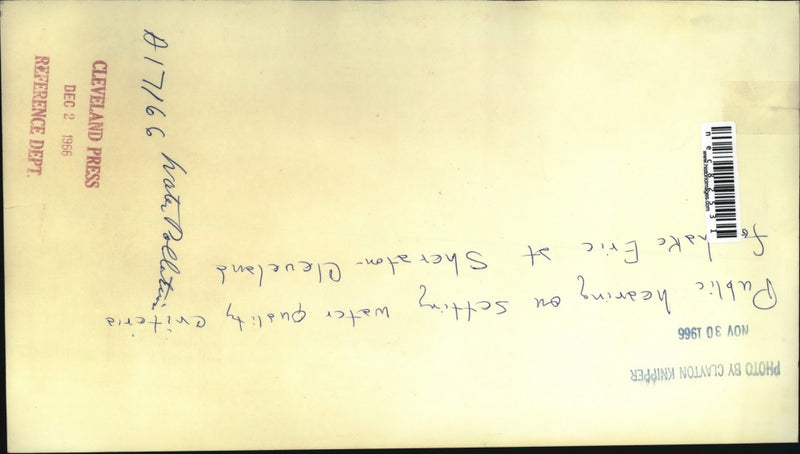 PHOTO BY CLAYTON KNIPPER
NOV 30 1966
Public hearing on setting water quality criteria
for Lake Erie at Sheraton-Cleveland
A 17166 Water Pollution
CLEVELAND PRESS
DEC 2 1966
REFERENCE DEPT.
www.historicimages.com